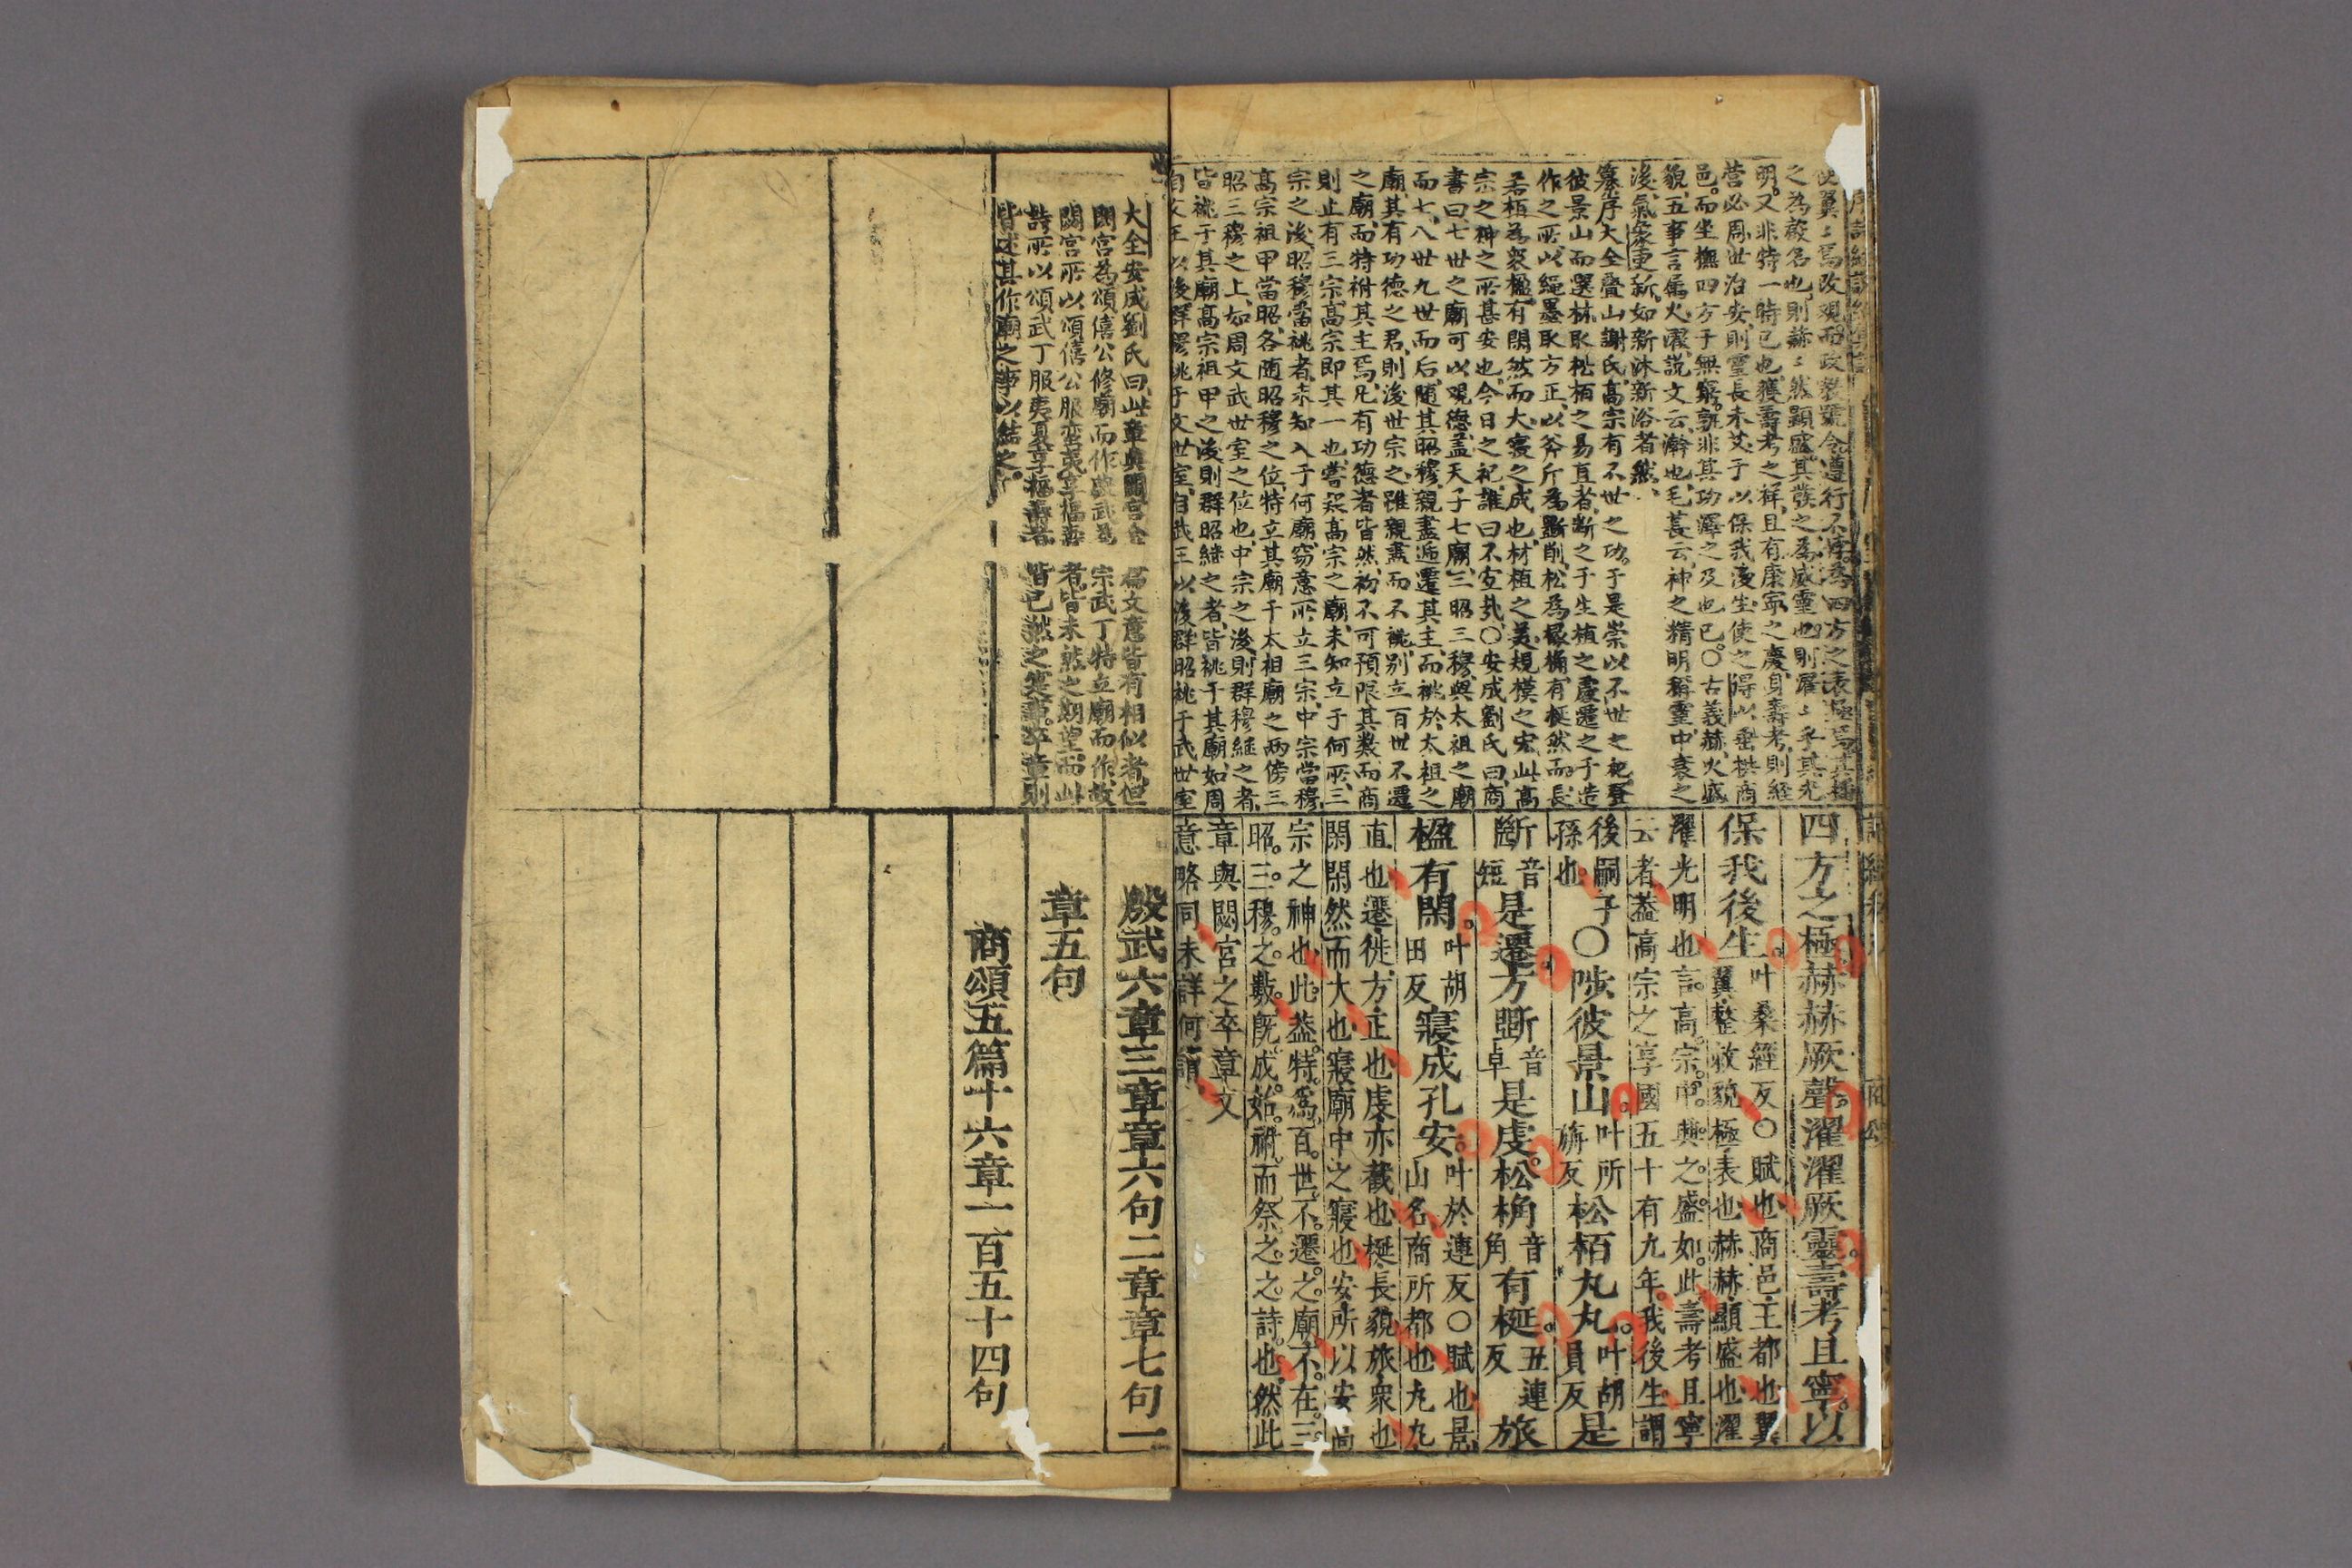 使翼〻爲改觀而政敎號令遵行不悖爲四方之表極焉其播
之為聲名也則赫〻然顯盛其發之為威靈也則濯〻乎其光
明又非特一時已也獲壽考之祥且有康寧之慶身壽考則經
營必周世治安則靈長未艾于以保我後生使之得以垂拱商
邑而坐撫四方于無窮孰非其功澤之及也已○古義赫火盛
貌五事言屬火濯說文云瀚也王萇云神之精明稱靈中衰之
後氣象更新如新沐新浴者然
纂序大全疊山謝氏高宗有不世之功于是崇以不世之祀登
彼景山而選林取松栢之易直者斷之于生植之處遷之于造
作之所以繩墨取方正以斧斤為斲削松為榱桷有梃然而長
若栢為衆楹有閑然而大寢之成也材植之美規模之宏此高
宗之神之所甚安也今日之祀誰曰不宜哉○安成劉氏曰商
書曰七世之廟可以觀德蓋天子七廟三昭三穆與太祖之廟
而七八世九世而后隨其昭穆親盡逓遷其主而祧於太祖之
廟其有功德之君則後世宗之雖親盡而不祧别立百世不遷
之廟而特祔其主焉凡有功德者皆然初不可預限其数而商
則止有三宗高宗即其一也嘗疑高宗之廟未知立于何所三
宗之後昭穆當祧者未知入于何廟窃意所立三宗中宗當穆
高宗祖甲當昭各随昭穆之位特立其廟于太祖廟之两傍三
昭三穆之上如周文武世室之位也中宗之後則群穆継之者
皆祧于其廟高宗祖甲之後則群昭継之者皆祧于其廟如周
自文王以後群穆祧于文世室自武王以後群昭祧于武世室
四方之極赫赫厥聲濯濯厥靈壽考且寧以
保我後生叶桑經反○賦也商邑王都也翼翼整敕貌極表也赫赫顯盛也濯
濯光明也言高宗中興之盛如此壽考且寧云者蓋高宗之享國五十有九年我後生謂
後嗣子孫也○陟彼景山叶所旃反松栢丸丸叶胡員反是
斷音短是遷方斲音卓是虔松桷音角有梴丑連反旅
楹有閑叶胡田反寢成孔安叶於連反○賦也景山名商所都也丸丸
直也遷徙方正也虔亦截也梴長貌旅衆也閑閑然而大也寢廟中之寢也安所以安高
宗之神也此蓋特爲百世不遷之廟不在三昭三穆之數既成始祔而祭之之詩也然此
章與閟宮之卒章文意略同未詳何謂
大全安成劉氏曰此章與閟宮全篇文意皆有相似者但
閟宮為頌僖公修廟而作殷武為宗武丁特立廟而作故
閟宮所以頌僖公服蛮夷享福壽者皆未然之期望而此
詩所以頌武丁服夷夏享福壽者皆已然之寔事卒章則
皆述其作廟之事以結之
殷武六章三章章六句二章章七句一
章五句
商頌五篇十六章一百五十四句